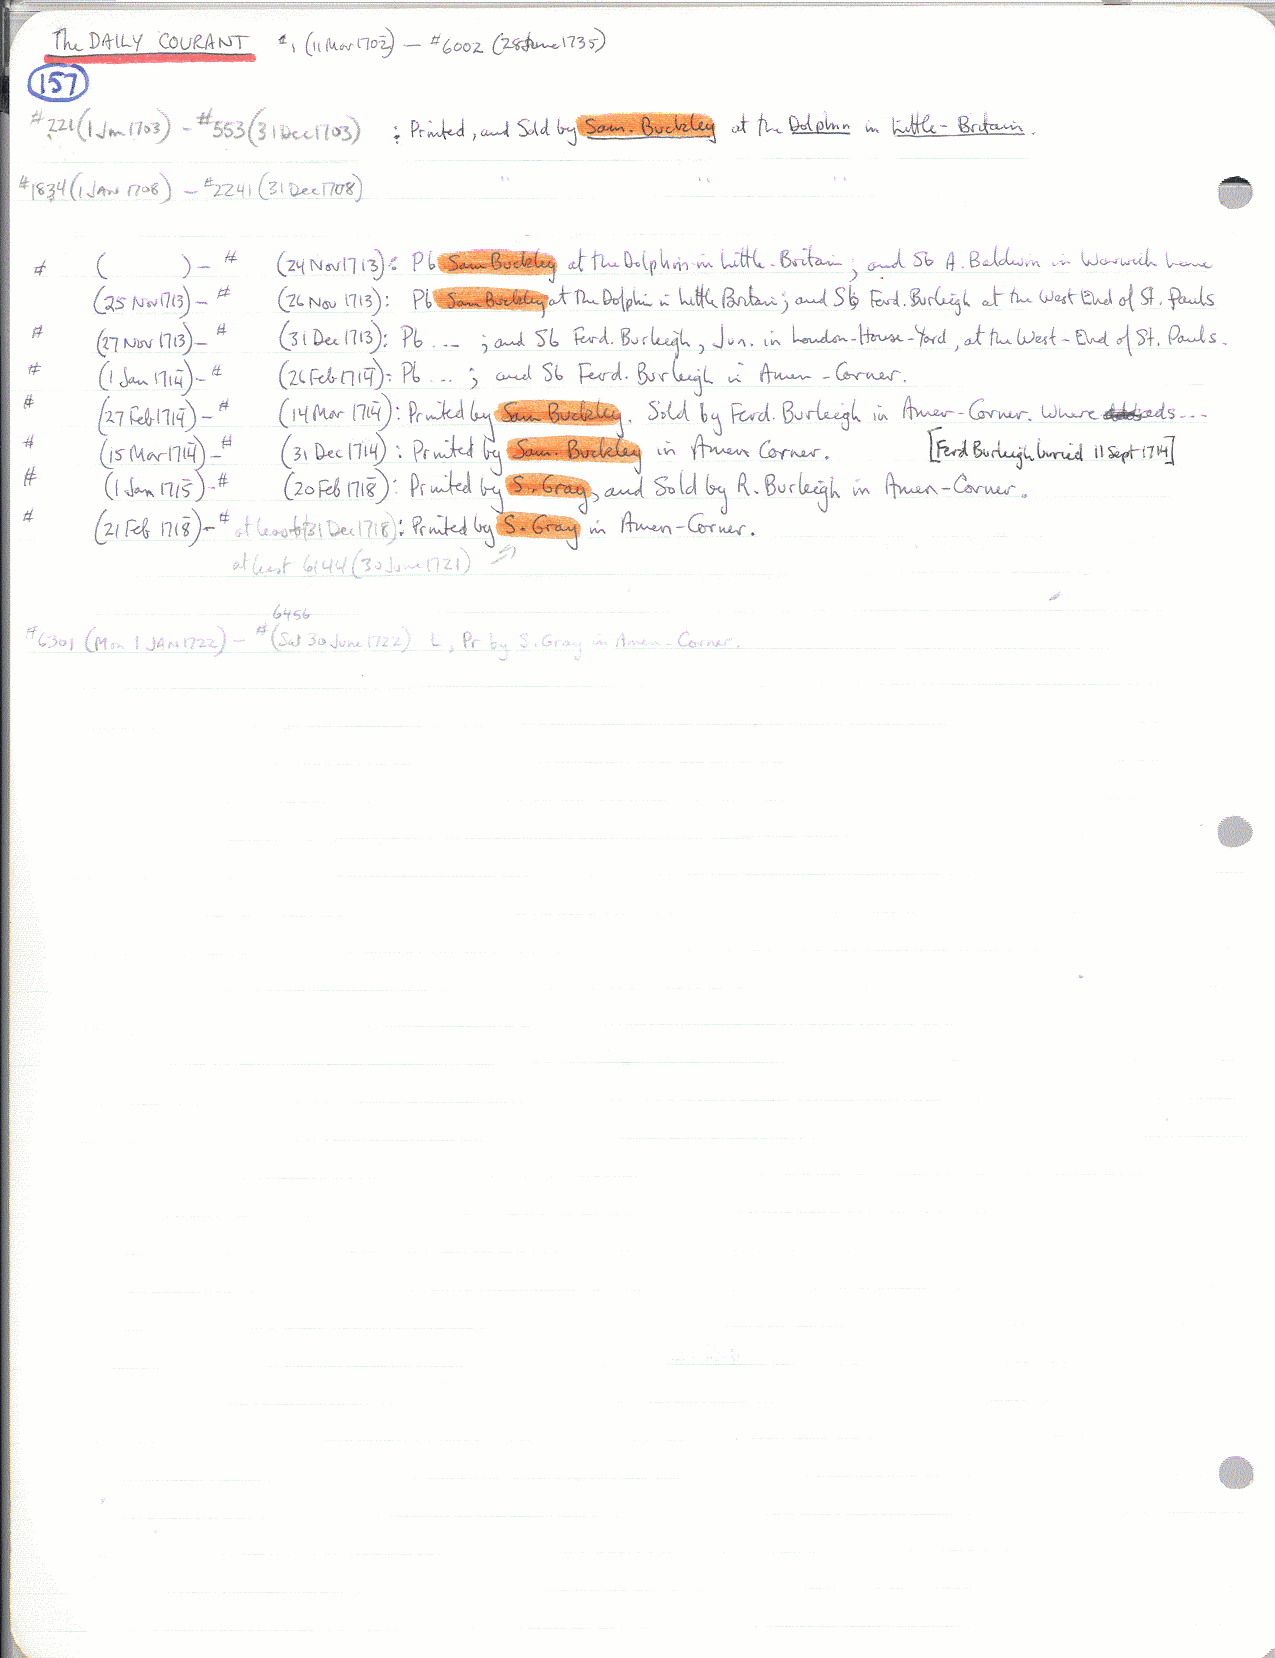 The DAILY COURANT #1 (11 Mar 1702) — #6002 (28 June 1735)
157
#221 (1 Jan 1703) - #553 (31 Dec 1703) : Printed, and Sold by Sam. Buckley at the Dolphin in Little-Britain.
#1834 (1 JAN 1708) - #2241 (31 Dec 1708) " " "
# ( ) - # (24 Nov 1713): Pb Sam Buckley at the Dolphin in Little-Britain; and Sb A. Baldwin in Warwick Lane
(25 Nov 1713) - # (26 Nov 1713): Pb Sam Buckley at the Dolphin in Little Britain; and Sb Ferd. Burleigh at the West End of St. Pauls
# (27 Nov 1713) - # (31 Dec 1713): Pb ... ; and Sb Ferd. Burleigh, Jun. in London-House-Yard, at the West-End of St. Pauls.
# (1 Jan 1714) - # (26 Feb 1714): Pb ... ; and Sb Ferd. Burleigh in Amen-Corner.
# (27 Feb 1714) - # (14 Mar 1714): Printed by Sam Buckley. Sold by Ferd. Burleigh in Amen-Corner. Where ads ...
# (15 Mar 1714) - # (31 Dec 1714): Printed by Sam. Buckley in Amen Corner. [Ferd Burleigh buried 11 Sept 1714]
# (1 Jan 1715) - # (20 Feb 1718): Printed by S. Gray, and Sold by R. Burleigh in Amen-Corner.
# (21 Feb 1718) - # at least (31 Dec 1718): Printed by S. Gray in Amen-Corner.
at least 6144 (30 June 1721) "
6456
#6301 (Mon 1 JAN 1722) - # (Sat 30 June 1722) L, Pr by S. Gray in Amen-Corner.